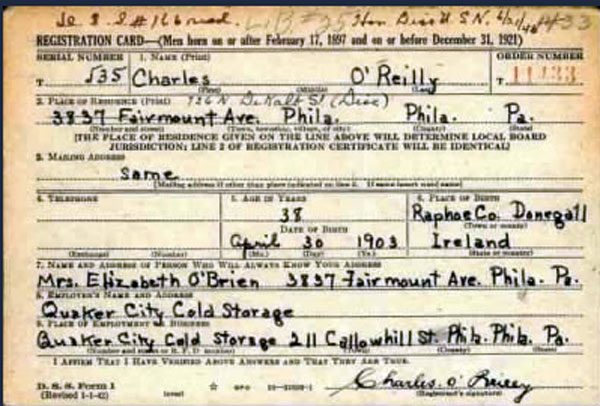 Hon Disc U.S.N.
REGISTRATION CARD—(Men born on or after February 17, 1897 and on or before December 31, 1921)
SERIAL NUMBER 1. NAME (Print) ORDER NUMBER
T 535 Charles O'Reilly T 11433
(First) (Middle) (Last)
2. PLACE OF RESIDENCE (Print)
3837 Fairmount Ave. Phila. Phila. Pa.
(Number and street) (Town, township, village, or city) (County) (State)
[THE PLACE OF RESIDENCE GIVEN ON THE LINE ABOVE WILL DETERMINE LOCAL BOARD
JURISDICTION; LINE 2 OF REGISTRATION CERTIFICATE WILL BE IDENTICAL]
3. MAILING ADDRESS
Same
[Mailing address if other than place indicated on line 2. If same insert word same]
4. TELEPHONE 5. AGE IN YEARS 6. PLACE OF BIRTH
38 Raphoe Co. Donegall
DATE OF BIRTH (Town or county)
April 30 1903 Ireland
(Exchange) (Number) (Mo.) (Day) (Yr.) (State or country)
7. NAME AND ADDRESS OF PERSON WHO WILL ALWAYS KNOW YOUR ADDRESS
Mrs. Elizabeth O'Brien 3837 Fairmount Ave. Phila. Pa.
8. EMPLOYER'S NAME AND ADDRESS
Quaker City Cold Storage
9. PLACE OF EMPLOYMENT OR BUSINESS
Quaker City Cold Storage 211 Callowhill St. Phila. Phila. Pa.
(Number and street or R. F. D. number) (Town) (County) (State)
I AFFIRM THAT I HAVE VERIFIED ABOVE ANSWERS AND THAT THEY ARE TRUE.
D. S. S. Form 1
(Revised 1-1-42) (over) GPO Charles O'Reilly
(Registrant's signature)